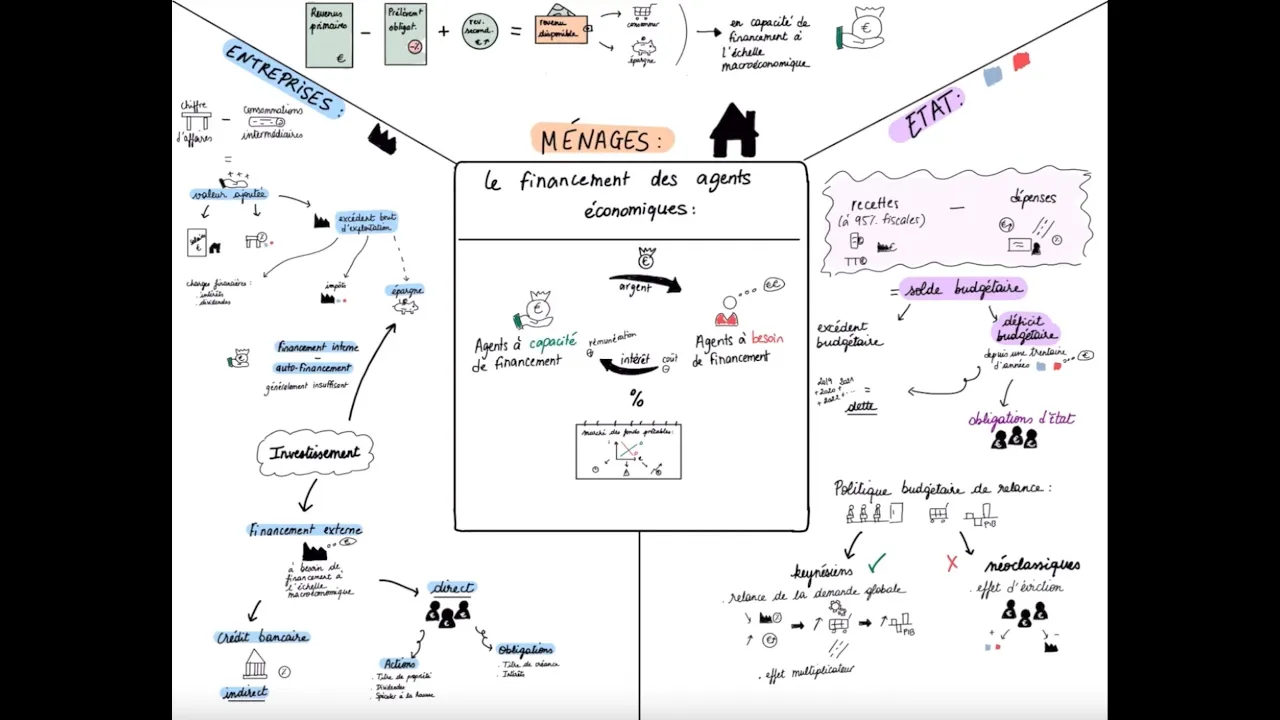 Revenus
primaires
€
-
Prélèvent
obligat.
+
rev.
second.
€
=
revenu
disponible
consommer
épargne
en capacité de
financement à
l'échelle
macroéconomique
€
ENTREPRISES :
chiffre
d'affaires
-
consommations
intermédiaires
=
+++
valeur ajoutée
excédent brut
d'exploitation
salaire
€
charges financières :
. intérêts
. dividendes
impôts
épargne
€
financement interne
-
auto-financement
généralement insuffisant
Investissement
Financement externe
€
à besoin de
financement à
l'échelle
macroéconomique
Crédit bancaire
indirect
direct
€ € €
Actions
. Titre de propriété
. Dividendes
. Spéculer à la hausse
Obligations
. Titre de créance
. Intérêts
MÉNAGES :
Le financement des agents
économiques :
€
argent
€
€€
Agents à capacité
de financement
Agents à besoin
de financement
rémunération
⊕
intérêt
coût
⊖
%
marché des fonds prêtables :
ETAT :
recettes
(à 95% fiscales)
-
dépenses
= solde budgétaire
excédent
budgétaire
déficit
budgétaire
depuis une trentaine
d'années
€
2019 2021
+ 2020 +
+ 2022 + ...
=
dette
obligations d'État
€ € €
Politique budgétaire de relance :
PIB
keynésiens
. relance de la demande globale
↘
↑
€
↑
↑
PIB
. effet multiplicateur
X
néoclassiques
. effet d'éviction
€ € €
+
-